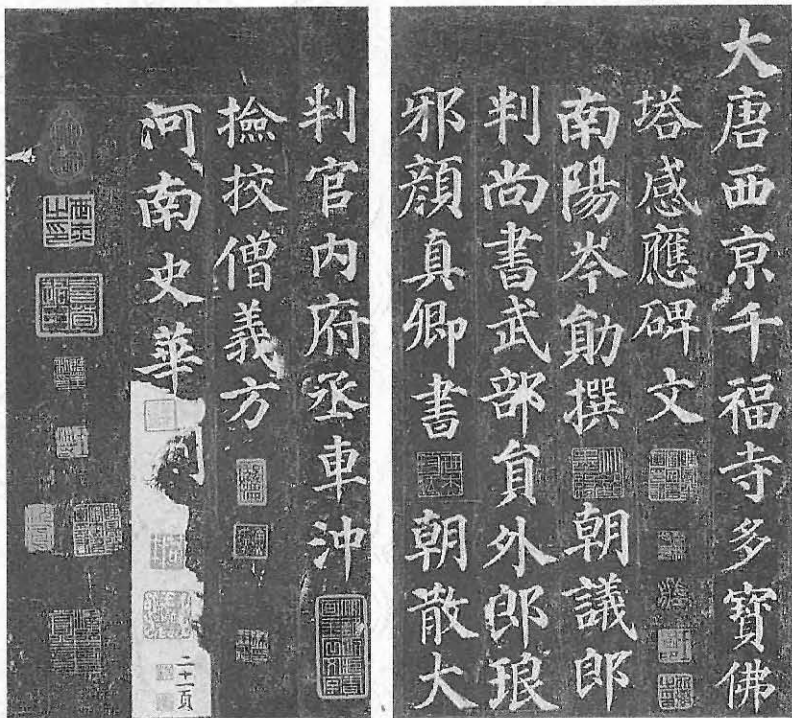 大唐西京千福寺多寶佛
塔感應碑文
南陽岑勛撰 朝議郎
判尚書武部員外郎琅
邪顏真卿書 朝散大
判官內府丞車沖
撿挍僧義方
河南史華刻
二十一頁